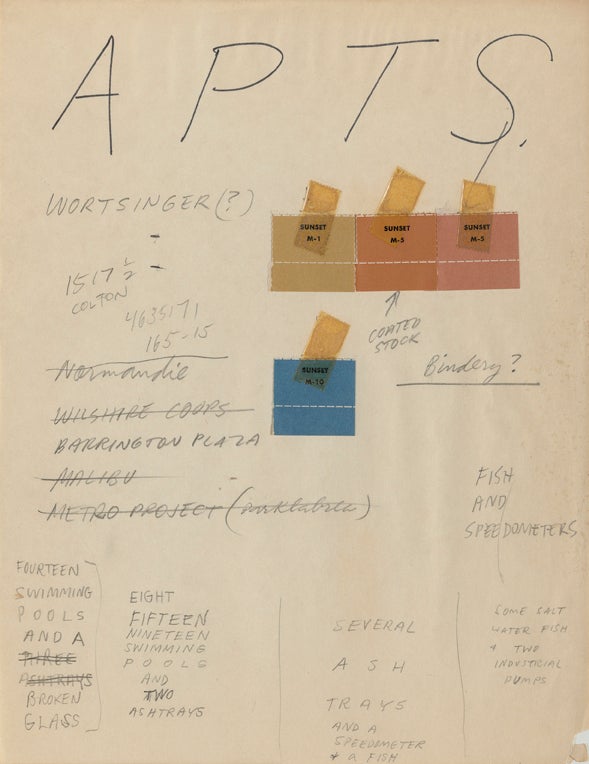 APTS.
WORTSINGER(?)
SUNSET
M-1
SUNSET
M-5
SUNSET
M-5
1517 1/2
COLTON
4635171
165-15
COATED
STOCK
SUNSET
M-10
Normandie
Bindery?
WILSHIRE COOPS
BARRINGTON PLAZA
MALIBU
METRO PROJECT (parklabrea)
FISH
AND
SPEEDOMETERS
FOURTEEN
SWIMMING
POOLS
AND A
THREE
ASHTRAYS
BROKEN
GLASS
EIGHT
FIFTEEN
NINETEEN
SWIMMING
POOLS
AND
TWO
ASHTRAYS
SEVERAL
ASH
TRAYS
AND A
SPEEDOMETER
+ a FISH
SOME SALT
WATER FISH
+ TWO
INDUSTRIAL
PUMPS